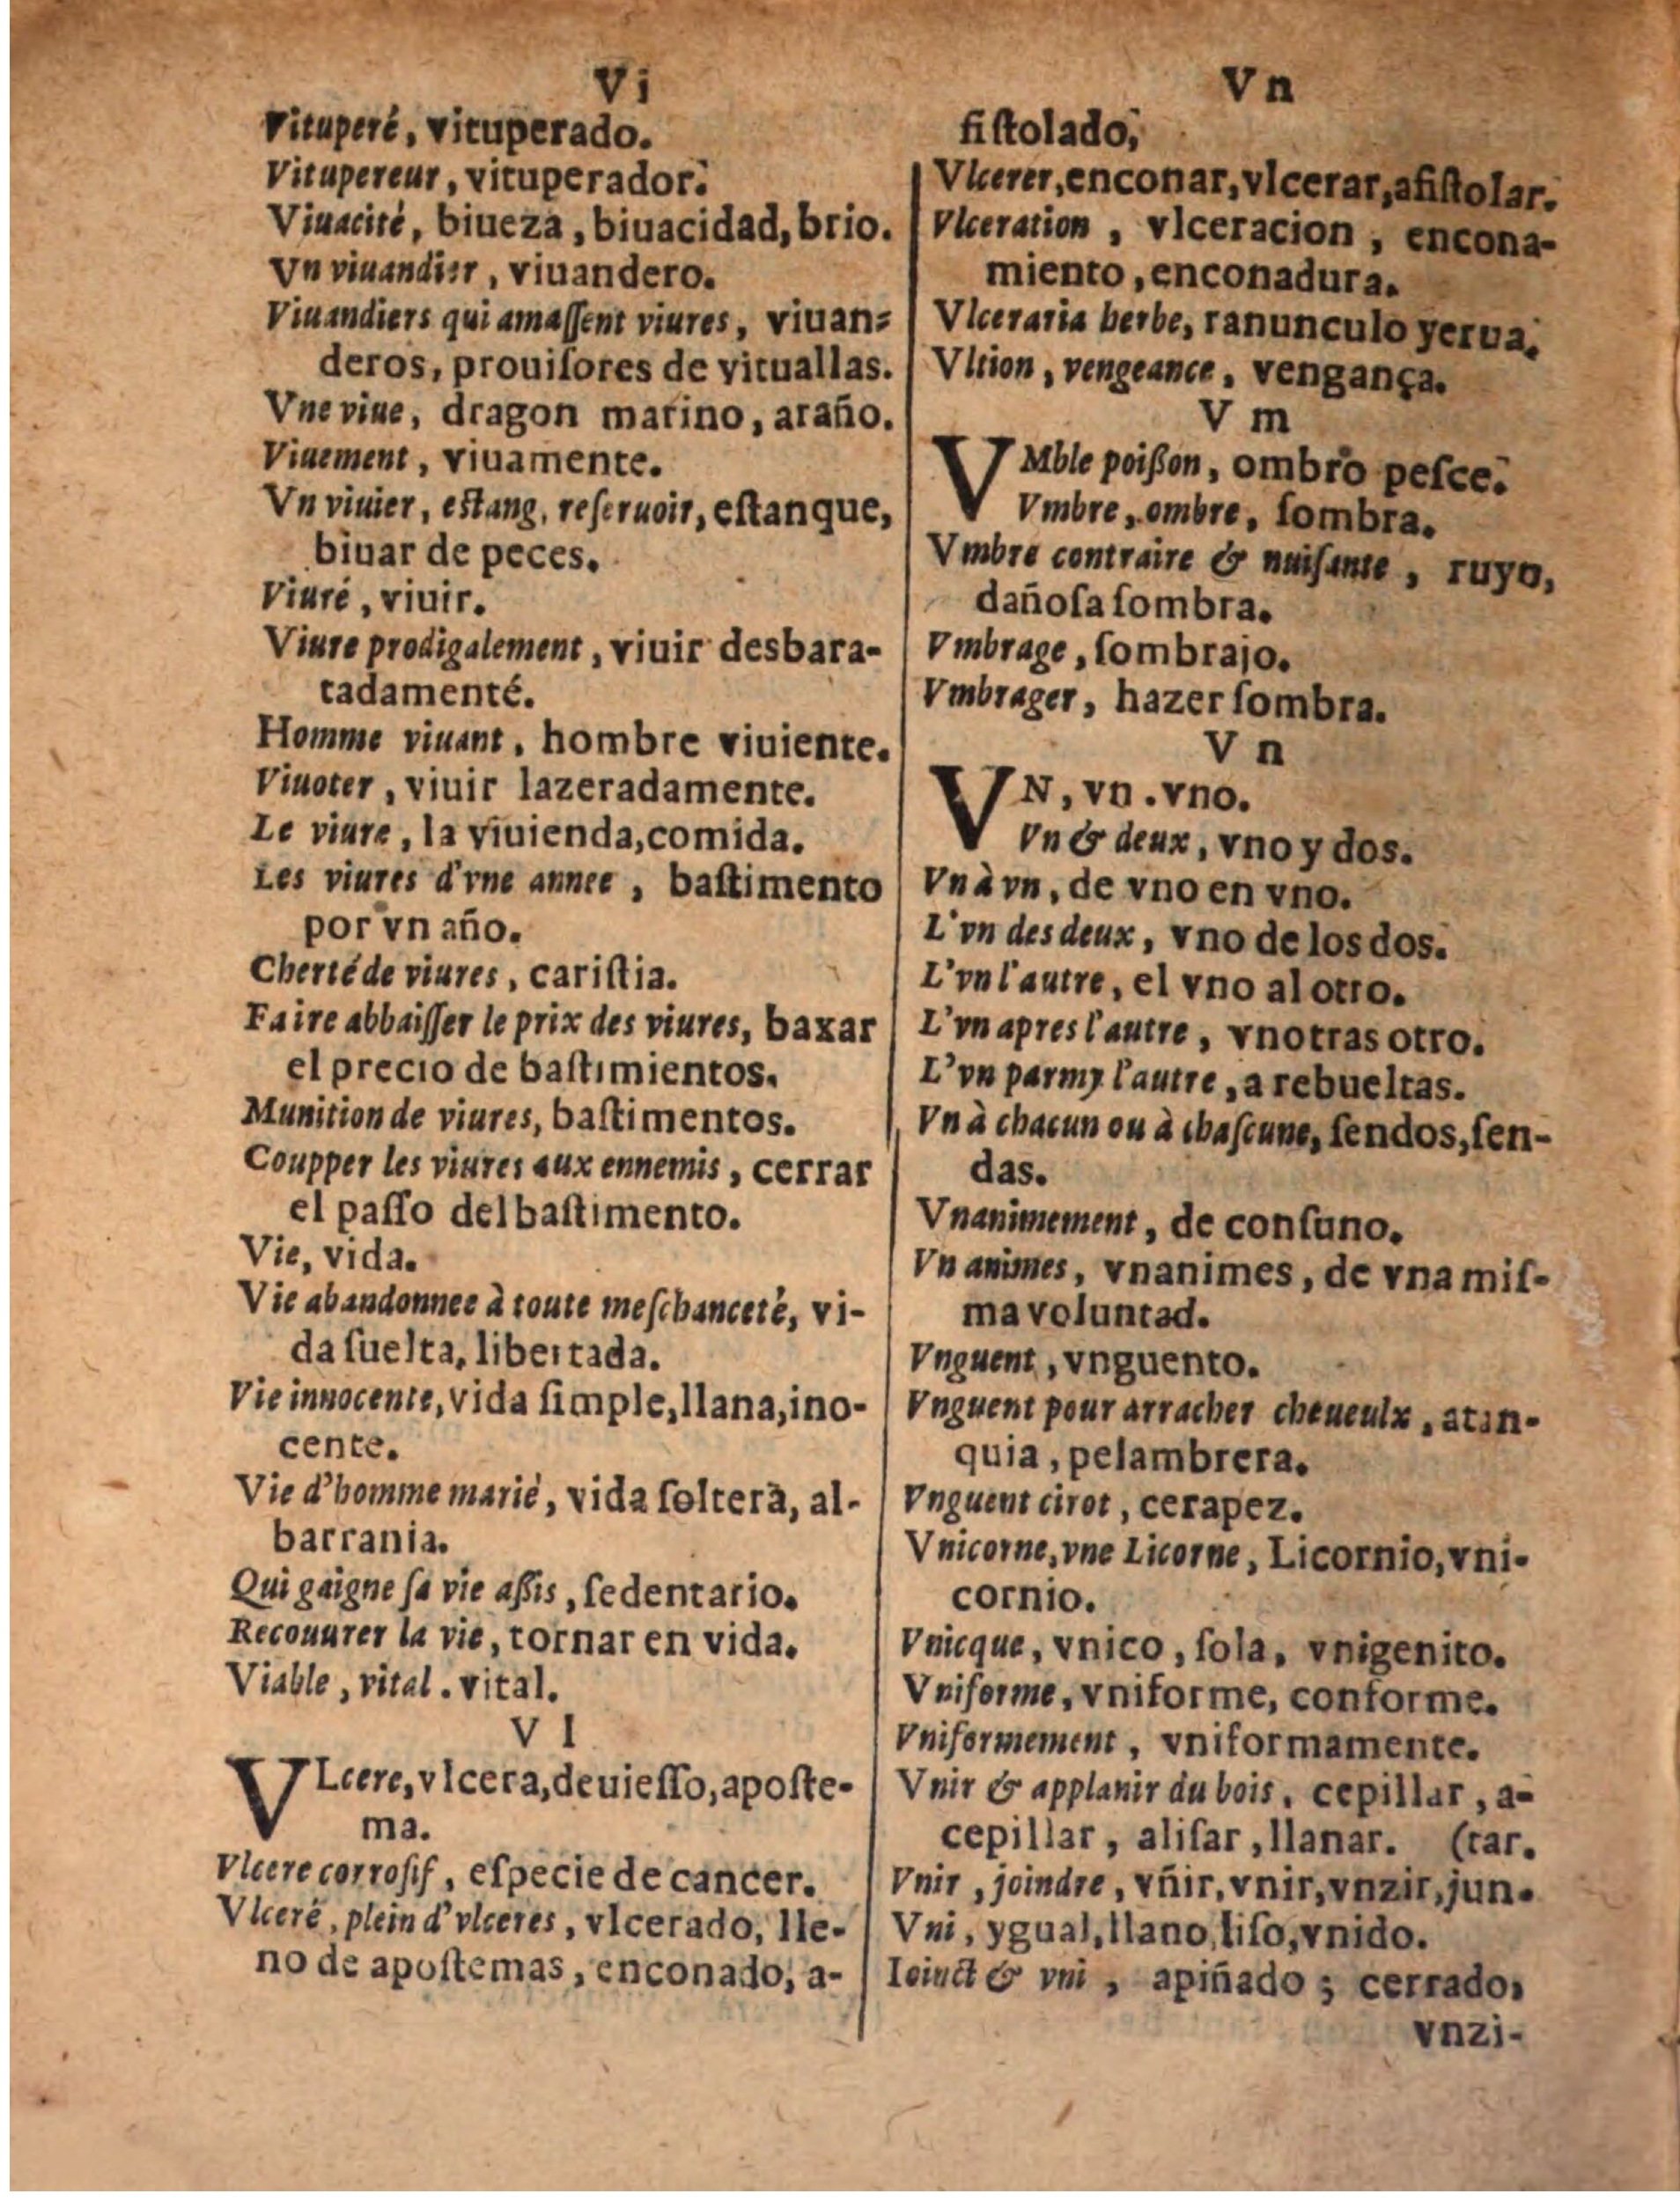 Vi
Vituperé, vituperado.
Vitupereur, vituperador.
Viuacité, biueza, biuacidad, brio.
Vn viuandier, viuandero.
Viuandiers qui amaſſent viures, viuan-
deros, prouiſores de vituallas.
Vne viue, dragon marino, araño.
Viuement, viuamente.
Vn viuier, eſtang, reſeruoir, eſtanque,
biuar de peces.
Viuré, viuir.
Viure prodigalement, viuir desbara-
tadamenté.
Homme viuant, hombre viuiente.
Viuoter, viuir lazeradamente.
Le viure, la viuienda, comida.
Les viures d'vne annee, baſtimento
por vn año.
Cherté de viures, cariſtia.
Faire abbaiſſer le prix des viures, baxar
el precio de baſtimientos.
Munition de viures, baſtimentos.
Coupper les viures aux ennemis, cerrar
el paſſo del baſtimento.
Vie, vida.
Vie abandonnee à toute meſchanceté, vi-
da ſuelta, libertada.
Vie innocente, vida ſimple, llana, ino-
cente.
Vie d'homme marié, vida ſoltera, al-
barrania.
Qui gaigne ſa vie aßis, ſedentario.
Recouurer la vie, tornar en vida.
Viable, vital. vital.
V l
VLcere, vlcera, deuieſſo, apoſte-
ma.
Vlcere corroſif, eſpecie de cancer.
Vlceré, plein d'vlceres, vlcerado, lle-
no de apoſtemas, enconado, a-
Vn
fiſtolado,
Vlcerer, enconar, vlcerar, afiſtolar.
Vlceration, vlceracion, encona-
miento, enconadura.
Vlceraria herbe, ranunculo yerua.
Vltion, vengeance, vengança.
V m
VMble poißon, ombro peſce.
Vmbre, ombre, ſombra.
Vmbre contraire & nuiſante, ruyn,
dañoſa ſombra.
Vmbrage, ſombrajo.
Vmbrager, hazer ſombra.
V n
VN, vn. vno.
Vn & deux, vno y dos.
Vn à vn, de vno en vno.
L'vn des deux, vno de los dos.
L'vn l'autre, el vno al otro.
L'vn apres l'autre, vno tras otro.
L'vn parmy l'autre, a rebueltas.
Vn à chacun ou à chaſcune, ſendos, ſen-
das.
Vnanimement, de conſuno.
Vn animes, vnanimes, de vna miſ-
ma voluntad.
Vnguent, vnguento.
Vnguent pour arracher cheueulx, atan-
quia, pelambrera.
Vnguent cirot, cerapez.
Vnicorne, vne Licorne, Licornio, vni-
cornio.
Vnicque, vnico, ſola, vnigenito.
Vniforme, vniforme, conforme.
Vniformement, vniformamente.
Vnir & applanir du bois, cepillar, a-
cepillar, aliſar, llanar. (tar.
Vnir, joindre, vñir, vnir, vnzir, jun-
Vni, ygual, llano, liſo, vnido.
Ioinct & vni, apiñado; cerrado,
vnzi-